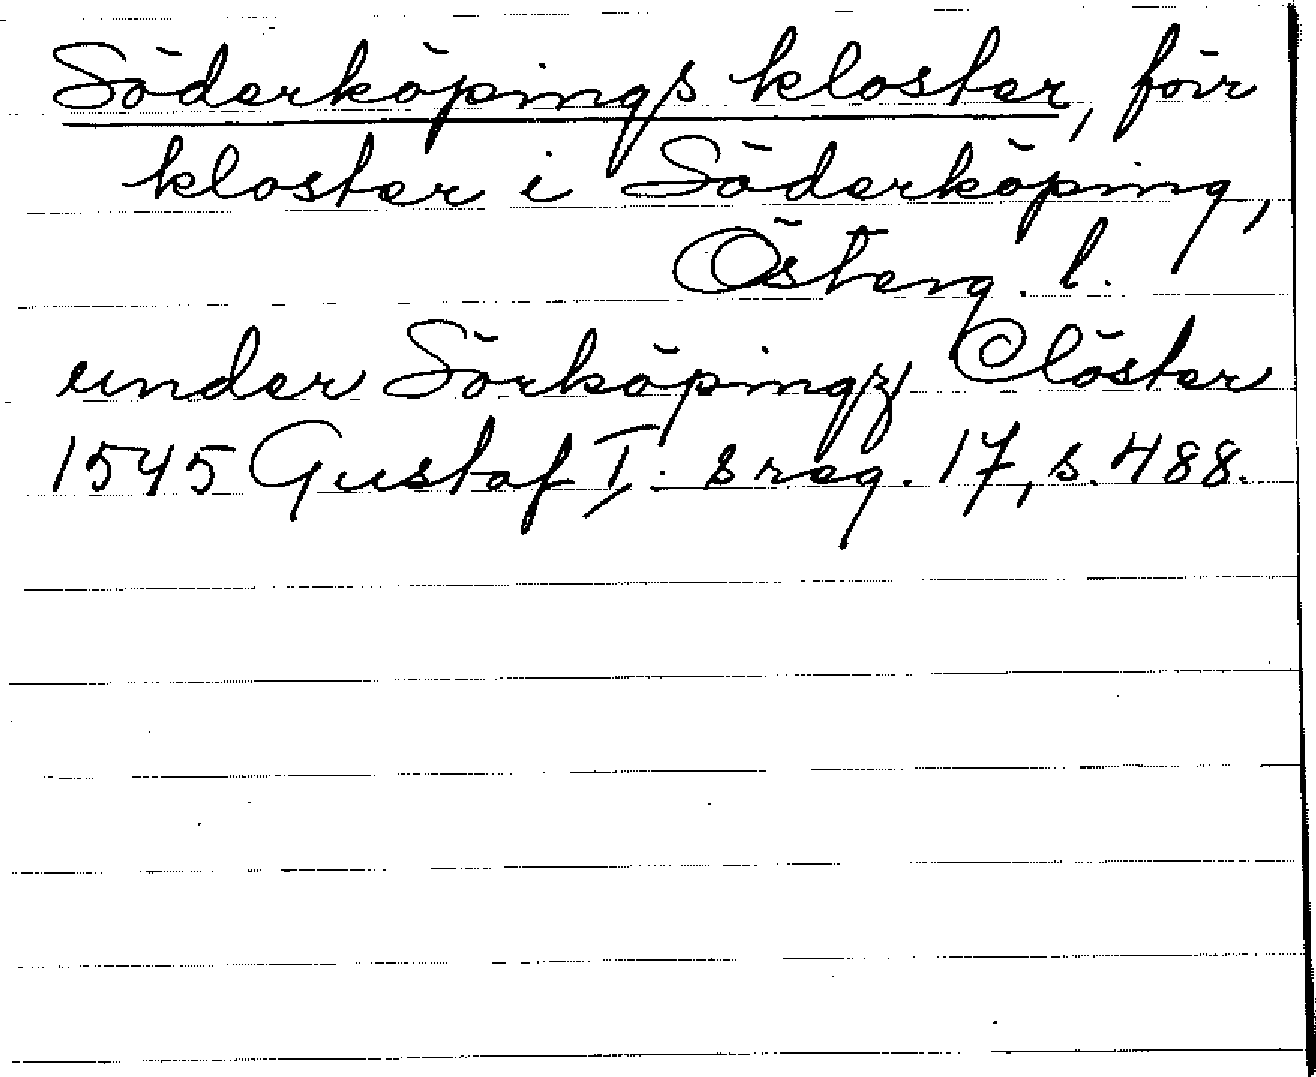 Söderköpings kloster, förr
kloster i Söderköping,
Österg. l.
under Sörköpingz Clöster
1545 Gustaf I:s reg. 17, s. 488.